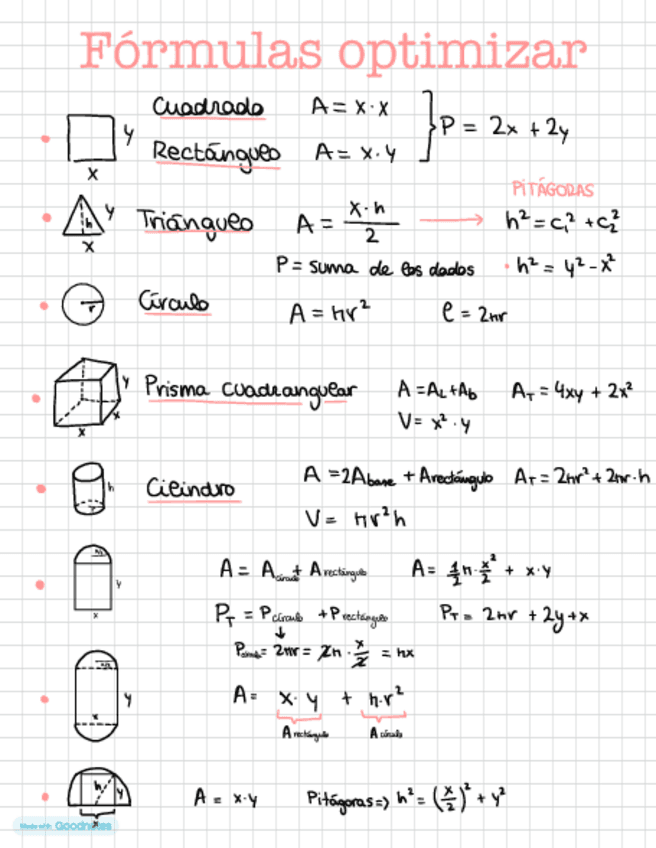 Fórmulas optimizar
Cuadrado A = x·x
Rectángulo A = x·y } P = 2x + 2y
y
x
PITÁGORAS
Triángulo A = x·h / 2 → h² = c₁² + c₂²
y
h
x
P = suma de los dados · h² = y² - x²
Círculo A = πr² l = 2πr
r
Prisma cuadrangular A = AL + Ab AT = 4xy + 2x²
y
x
x
V = x² · y
Cilindro A = 2Abase + Arectángulo AT = 2πr² + 2πr·h
h
V = πr²h
A = Acírculo + Arectángulo A = 1/2 π · x²/2 + x·y
y
x
PT = Pcírculo + Prectángulo PT = 2πr + 2y + x
↓
Pcírculo = 2πr = 2π · x/2 = πx
A = x·y + π·r²
y
x
Arectángulo Acírculo
A = x·y Pitágoras => h² = (x/2)² + y²
h
y
x
Made with Goodnotes